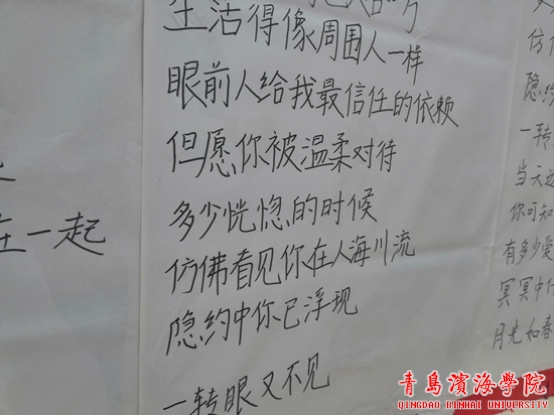 生活得像周围人一样
眼前人给我最信任的依赖
但愿你被温柔对待
多少恍惚的时候
仿佛看见你在人海川流
隐约中你已浮现
一转眼又不见
在一起
仿
隐约
一转
当天边
你可知
有多少爱
冥冥中什
月光如春
青島濱海學院
QINGDAO BINHAI UNIVERSITY